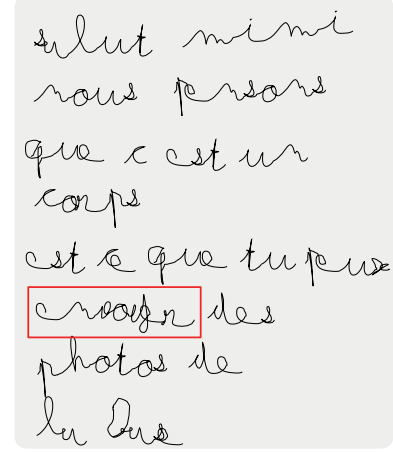 salut mimi
nous pensons
que c est un
corps
est ce que tu peux
envoyer des
photos de
la Dus